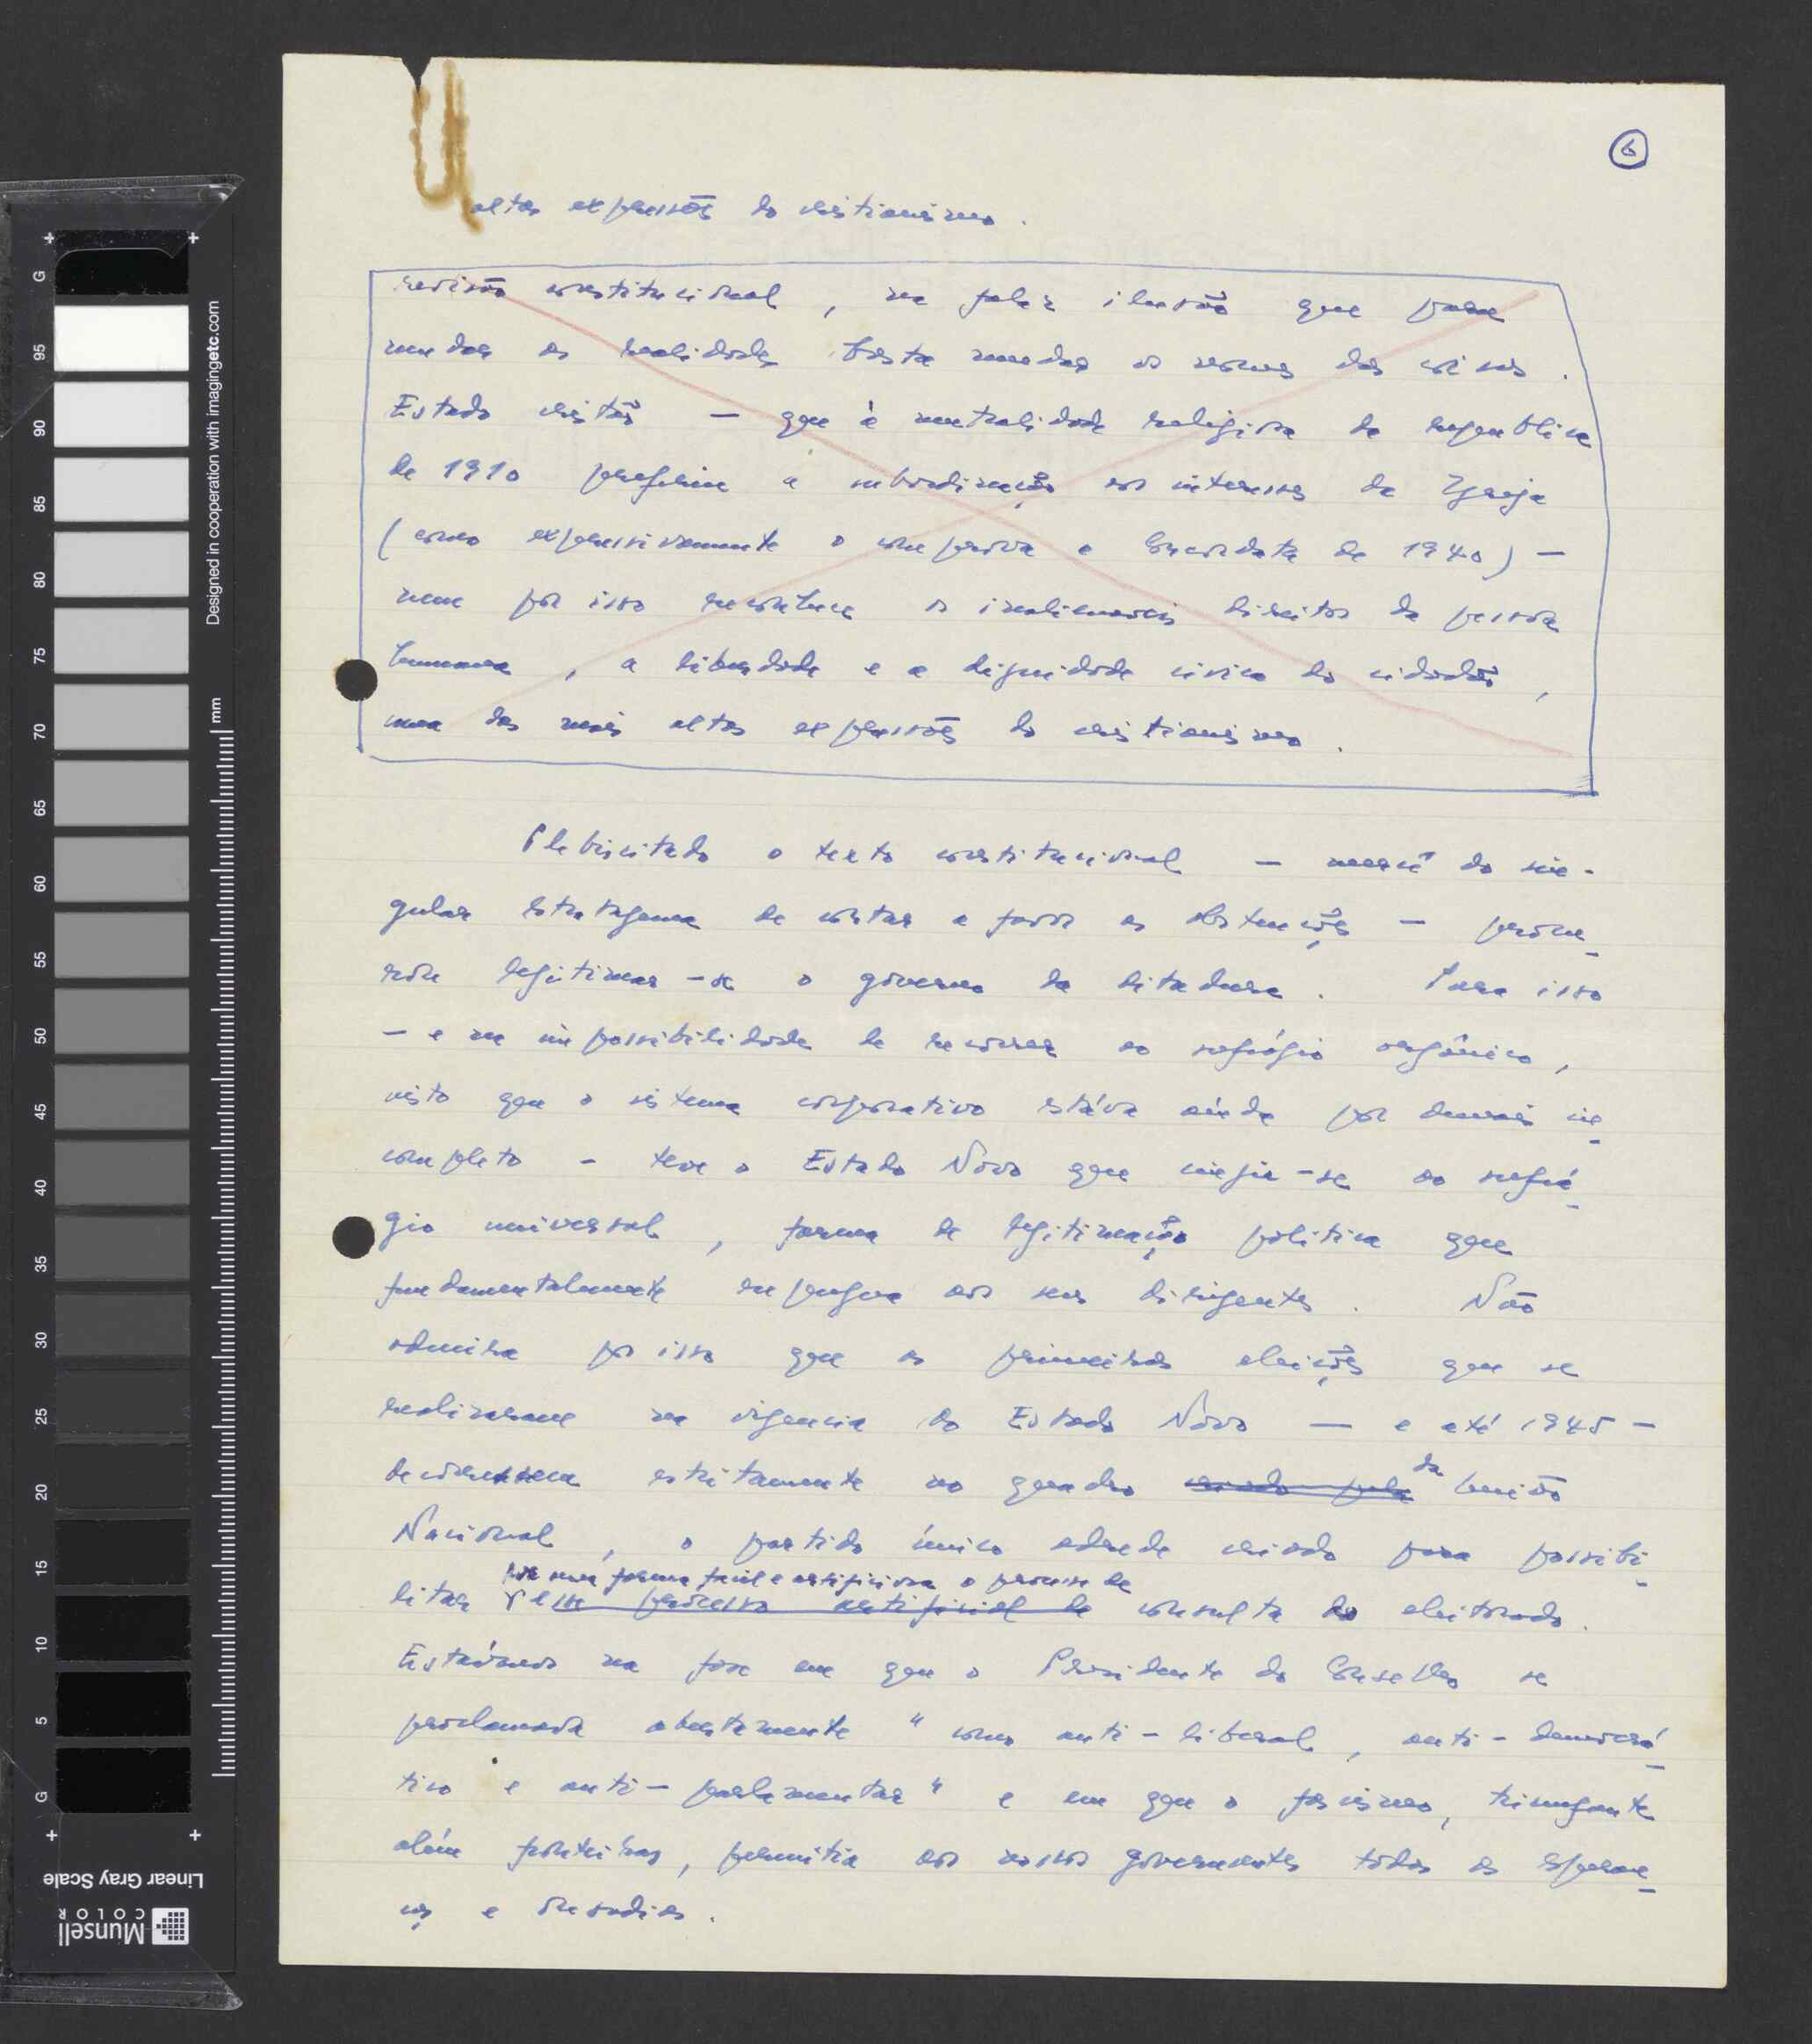 6
altas expressões do cristianismo.
revisão constitucional, na falaz ilusão que para
mudar as realidades basta mudar os nomes das coisas.
Estado cristão — que à neutralidade religiosa da república
de 1910 preferiu a subordinação aos interesses da Igreja
(como expressivamente o comprova a Concordata de 1940) —
nem por isso reconhece os inalienáveis direitos da pessoa
humana, a liberdade e a dignidade cívica do cidadão,
uma das mais altas expressões do cristianismo.
Plebiscitado o texto constitucional — mercê do sin-
gular estratagema de contar a favor as abstenções — procu-
rou legitimar-se o governo da ditadura. Para isso
— e na impossibilidade de recorrer ao sufrágio orgânico,
visto que o sistema corporativo estáva ainda por demais in-
completo — teve o Estado Novo que cingir-se ao sufrá-
gio universal, forma de legitimação política que
fundamentalmente repugna aos seus dirigentes. Não
admira por isso que as primeiras eleições que se
realizaram na vigencia do Estado Novo — e até 1945 —
decorressem estritamente no quadro criado pela da União
Nacional, o partido único adrede criado para possibi-
por uma forma facil e artificiosa o processo de
litar esse processo artificial de consulta do eleitorado.
Estávamos na fase em que o Presidente do Conselho se
proclamava abertamente "como anti-liberal, anti-democrá-
tico e anti-parlamentar" e em que o fascismo, triunfante
além fronteiras, permitia aos nossos governantes todas as esperan-
ças e ousadias.
Designed in cooperation with imagingetc.com
mm
G
95
90
85
80
75
70
65
60
55
50
45
40
35
30
25
20
15
10
5
G
Linear Gray Scale
Munsell
COLOR